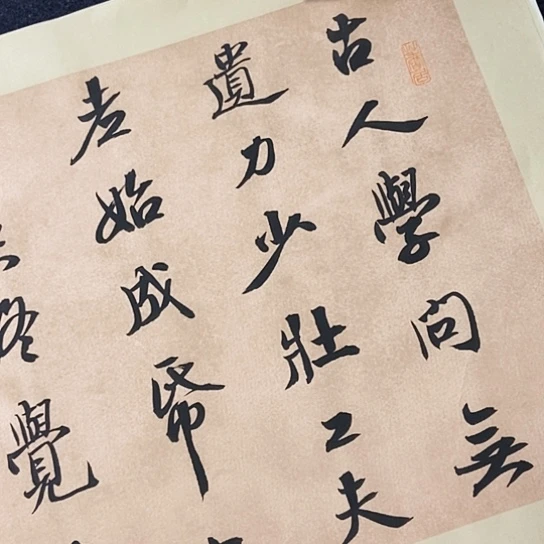 古人學問無
遺力少壯工夫
老始成帋
終覺